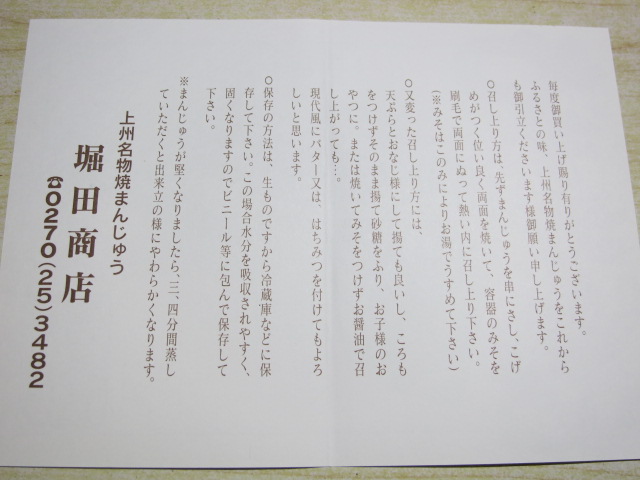 毎度御買い上げ賜り有りがとうございます。
ふるさとの味、上州名物焼まんじゅうをこれから
も御引立くださいます様御願い申し上げます。
○召し上り方は、先ずまんじゅうを串にさし、こげ
めがつく位い良く両面を焼いて、容器のみそを
刷毛で両面にぬって熱い内に召し上り下さい。
(※みそはこのみによりお湯でうすめて下さい)
○又変った召し上り方には、
天ぷらとおなじ様にして揚ても良いし、ころも
をつけずそのまま揚て砂糖をふり、お子様のお
やつに。または焼いてみそをつけずお醤油で召
し上がっても…。
現代風にバター又は、はちみつを付けてもよろ
しいと思います。
○保存の方法は、生ものですから冷蔵庫などに保
存して下さい。この場合水分を吸収されやすく、
固くなりますのでビニール等に包んで保存して
下さい。
※まんじゅうが堅くなりましたら、三、四分間蒸し
ていただくと出来立の様にやわらかくなります。
上州名物焼まんじゅう
堀田商店
☎0270(25)3482